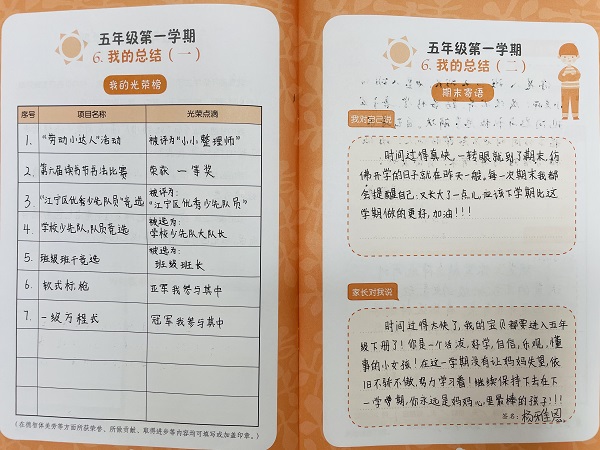 五年级第一学期
6. 我的总结（一）
我的光荣榜
序号 项目名称 光荣点滴
1. “劳动小达人”活动 被评为“小小整理师”
2. 第六届读书节书法比赛 荣获 一等奖
3. “江宁区优秀少先队员”竞选 被评为：
“江宁区优秀少先队员”
4. 学校少先队,队员竞选 被选为：
学校少先队大队长
5. 班级班干竞选 被选为：
班级班长
6. 软式标枪 亚军我参与其中
7. 一级方程长 冠军我参与其中
（在德智体美劳等方面所获荣誉、所做贡献、取得进步等内容均可填写或加盖印章。）
五年级第一学期
6. 我的总结（二）
期末寄语
我对自己说
时间过得真快，一转眼就到了期末，仿
佛开学的日子就在昨天一般。每一次期末我都
会提醒自己：又长大了一点儿，应该下学期比这
学期做的更好，加油！！！
家长对我说
时间过得太快了，我的宝贝都要进入五年
级下册了！你是一个活泼、好学，自信，乐观，懂
事的小女孩！在这一学期没有让妈妈失望，依
旧不骄不傲，努力学习着！继续保持下去在下
一学期，你永远是妈妈心里最棒的孩子！！！
签名：杨雅